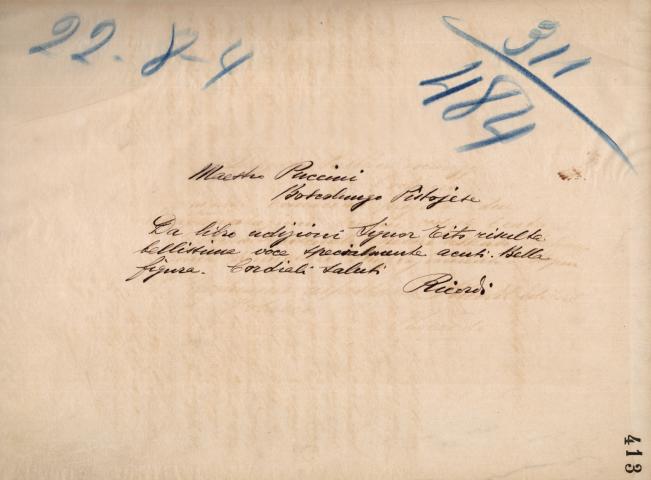 22-8-4
311
484
Maestro Puccini
Boscolungo Pistojese
Da libro udizioni Signor Tito risulta
bellissima voce specialmente acuti. Bella
figura. Cordiali saluti
Ricordi
413